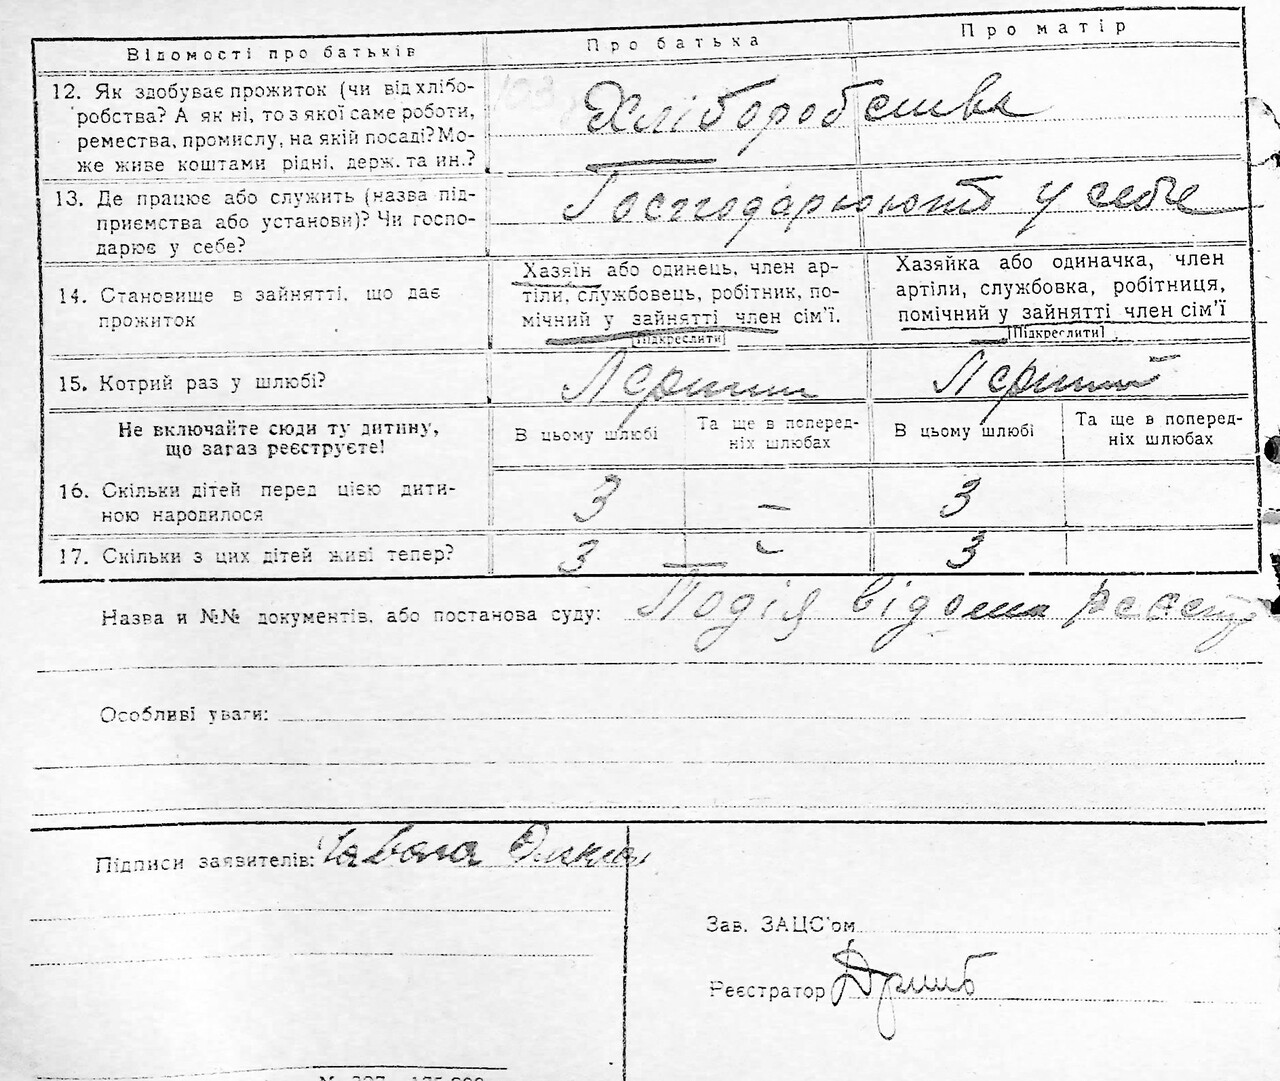 Відомості про батьків
Про батька
Про матір
12. Як здобуває прожиток (чи від хлібо-
робства? А як ні, то з якої саме роботи,
ремества, промислу, на якій посаді? Мо-
же живе коштами рідні, держ. та ин.?
Хліборобства
13. Де працює або служить (назва під-
приємства або установи)? Чи госпо-
дарює у себе?
Господарюють у себе
14. Становище в зайнятті, що дає
прожиток
Хазяїн або одинець, член ар-
тіли, службовець, робітник, по-
мічний у зайнятті член сім'ї.
[Підкреслити]
Хазяйка або одиначка, член
артіли, службовка, робітниця,
помічний у зайнятті член сім'ї
[Підкреслити]
15. Котрий раз у шлюбі?
Перший
Перший
Не включайте сюди ту дитину,
що загаз реєструєте!
В цьому шлюбі
Та ще в поперед-
ніх шлюбах
В цьому шлюбі
Та ще в поперед-
ніх шлюбах
16. Скільки дітей перед цією дити-
ною народилося
3
–
3
17. Скільки з цих дітей живі тепер?
3
–
3
Назва и №№ документів, або постанова суду: Подія відома реєстр
Особливі уваги:
Підписи заявителів:
Зав. ЗАЦС'ом
Реєстратор